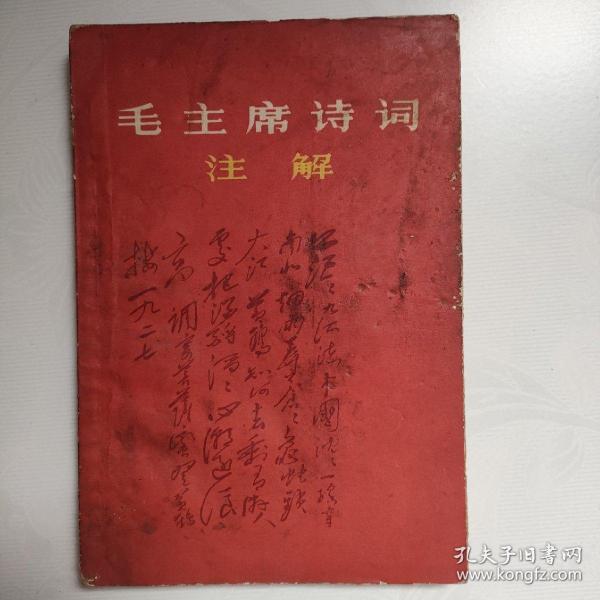 毛主席诗词
注解
茫々九派流中國沉々一线穿
南北烟雨莽苍々龟蛇鎖
大江 黄鹤知何去剩有游人
處把酒酹滔々心潮逐浪
高 調寄菩萨蛮登黄鹤
楼一九二七
孔夫子旧书网
www.kongfz.com